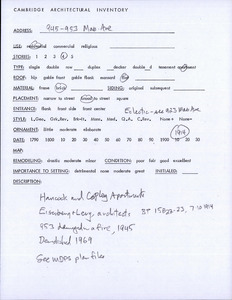 CAMBRIDGE ARCHITECTURAL INVENTORY
ADDRESS: 945-953 Mass Ave
USE: residential commercial religious
STORIES: 1 2 3 4 5
TYPE: single double row duplex decker double d tenement apartment
ROOF: hip gable front gable flank mansard flat
MATERIAL: frame brick SIDING: original subsequent
PLACEMENT: narrow to street broad to street square
ENTRANCE: flank front side end Eclectic-see 823 Mass Ave
STYLE: None
ORNAMENT: little moderate elaborate 1914
DATE: 1790 1800 10 20 30 40 50 60 70 80 90 1900 10 20 30
MAP:
REMODELING: drastic moderate minor CONDITION: poor fair good excellent
IMPORTANCE TO SETTING: detrimental none moderate great INITIALED:
DESCRIPTION:
Hancock and Copley Apartments
Eisenberg + Berg, architects BP 15822-23, 7
953 damaged in fire, 1945
Demolished 1969
See MDPS plan files